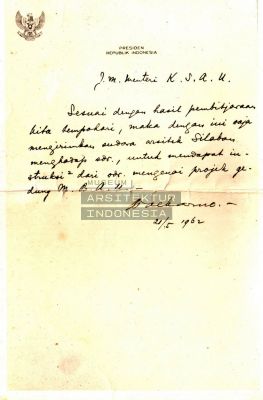 PRESIDEN
REPUBLIK INDONESIA
J.M. Menteri K.S.A.U.
Sesuai dengan hasil pembitjaraan
kita tempohari, maka dengan ini saja
mengirimkan saudara arsitek Silaban
menghadap sdr., untuk mendapat in-
struksi² dari sdr. mengenai projek ge-
dung M.B.A.U. -
MUSEUM
ARSITEKTUR
INDONESIA
Soekarno. -
21/5 1962